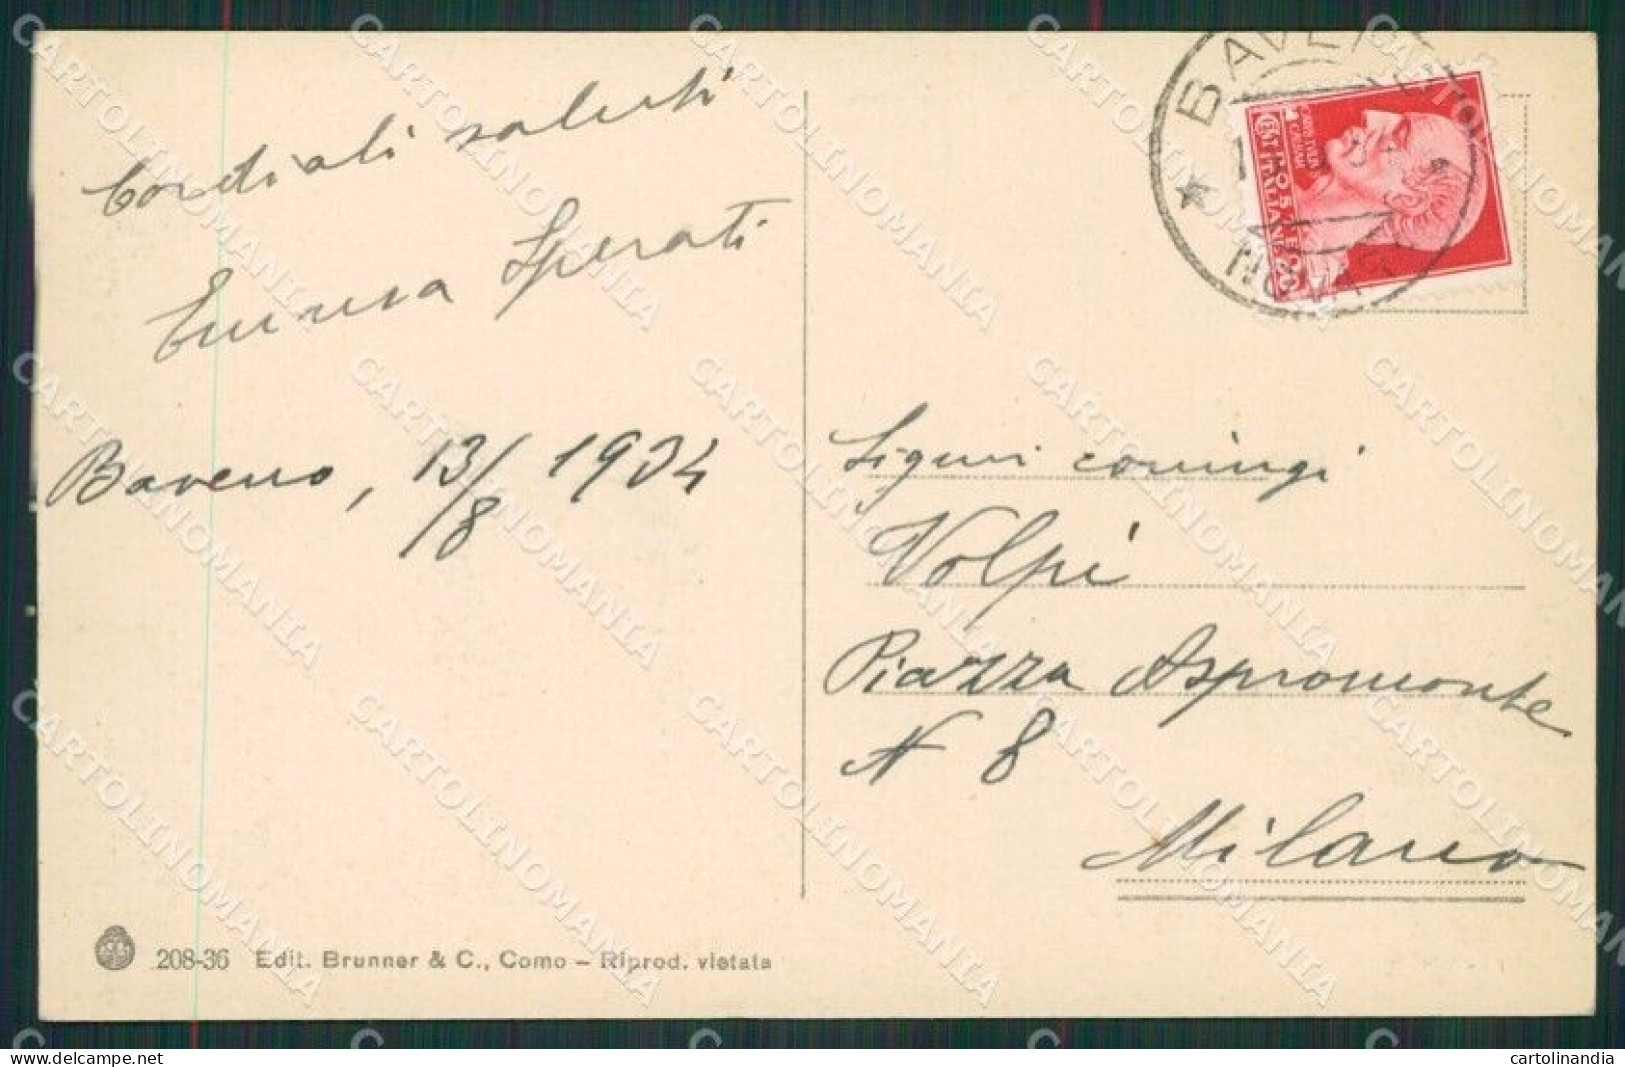 Cordiali saluti
Emma Sperati
Baveno, 13/8 1934
208-36 Edit. Brunner & C., Como - Riprod. vietata
BAVENO
NOVARA
POSTE ITALIANE
CENT 20
Signori coniugi
Volpi
Piazza Aspromonte
N 8
Milano
CARTOLINOMANIA
cartolinomania.delcampe.net
cartolinandia